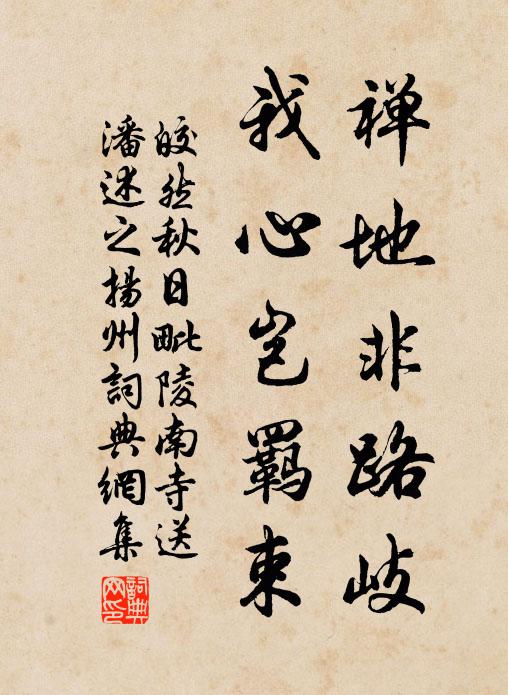 禅地非路岐
我心岂羁束
皎然秋日毗陵南寺送
潘述之揚州詞典網集
詞典
网印